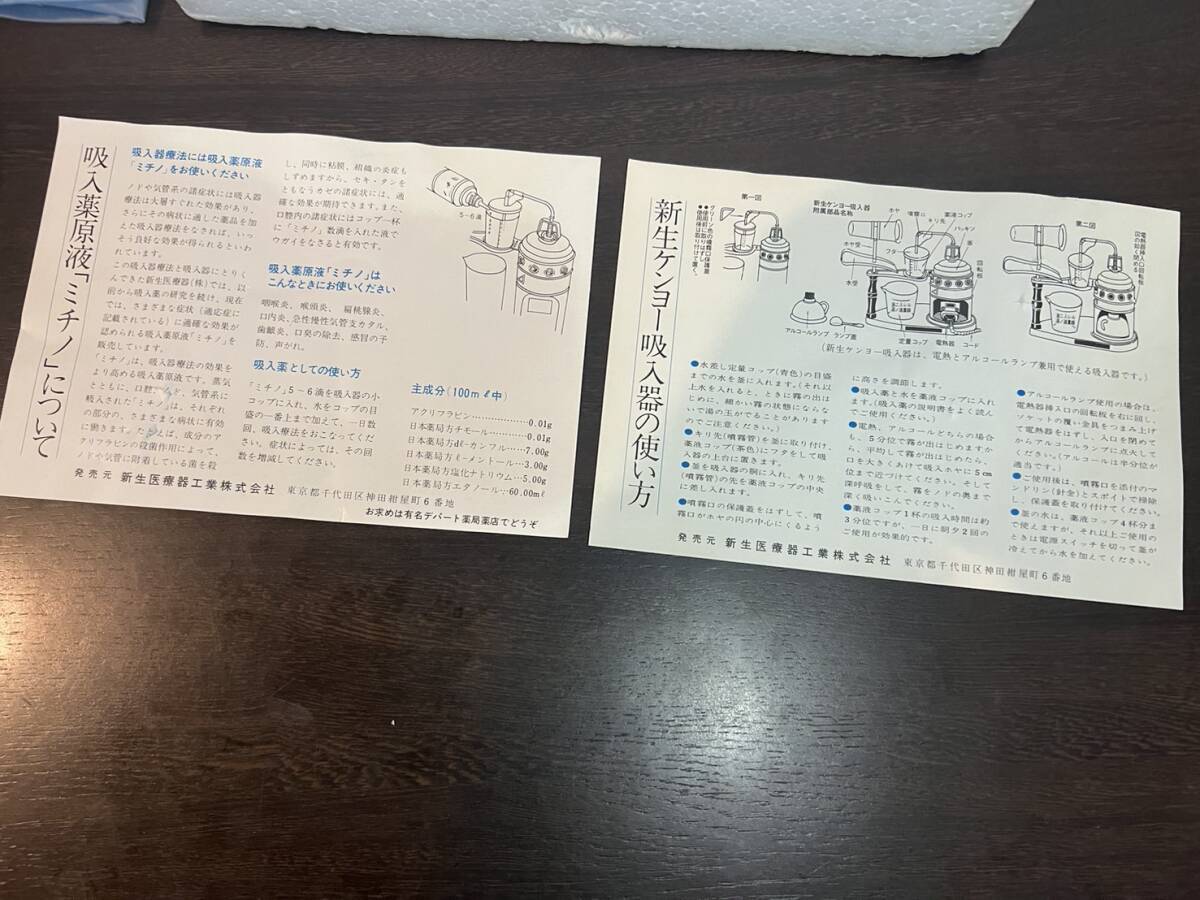 吸入薬原液「ミチノ」について
吸入器療法には吸入薬原液
「ミチノ」をお使いください
ノドや気管系の諸症状には吸入器
療法は大層すぐれた効果があり、
さらにその病状に適した薬品を加
えた吸入器療法をなされば、いっ
そう良好な効果が得られるといわ
れています。
この吸入器療法と吸入器にとりく
んできた新生医療器(株)では、以
前から吸入薬の研究を続け、現在
では、さまざまな症状(適応症に
記載されている)に適確な効果が
認められる吸入薬原液「ミチノ」を
販売しています。
「ミチノ」は、吸入器療法の効果を
より高める吸入薬原液です。蒸気
とともに、口腔、気管系に
吸入された「ミチノ」は、それぞれ
の部分の、さまざまな病状に有効
に働きます。たとえば、成分のア
クリフラビンの殺菌作用によって、
ノドや気管に附着している菌を殺
し、同時に粘膜、組織の炎症も
しずめますから、セキ・タンを
ともなうカゼの諸症状には、適
確な効果が期待できます。また、
口腔内の諸症状にはコップ一杯
に「ミチノ」数滴を入れた液で
ウガイをなさると有効です。
吸入薬原液「ミチノ」は
こんなときにお使いください
咽喉炎、喉頭炎、扁桃腺炎、
口内炎、急性慢性気管支カタル、
歯齦炎、口臭の除去、感冒の予
防、声がれ。
吸入薬としての使い方
「ミチノ」5-6滴を吸入器の小
コップに入れ、水をコップの目
盛の一番上まで加えて、一日数
回、吸入療法をおこなってくだ
さい。症状によっては、その回
数を増減してください。
5-6滴
主成分(100mℓ中)
アクリフラビン……………0.01g
日本薬局方チモール………0.01g
日本薬局方dℓ-カンフル……7.00g
日本薬局方ℓ-メントール…3.00g
日本薬局方塩化ナトリウム…5.00g
日本薬局方エタノール…60.00mℓ
発売元 新生医療器工業株式会社 東京都千代田区神田紺屋町6番地
お求めは有名デパート薬局薬店でどうぞ
新生ケンヨー吸入器の使い方
第一図
グリン色の噴霧口保護蓋
●使用前に取りはずし
●使用後は取り付けて置く。
新生ケンヨー吸入器
附属部品名称
ホヤ
噴霧口
キリ先
薬液コップ
パッキン
釜
ホヤ受
フタ
水受
回転板
アルコールランプ
ランプ蓋
定量コップ
電熱器
コード
第二図
電熱器挿入口回転板
図の如く閉める
(新生ケンヨー吸入器は、電熱とアルコールランプ兼用で使える吸入器です。)
●水差し定量コップ(青色)の目盛
までの水を釜に入れます。(それ以
上水を入れると、ときに霧の出は
じめに、細かい霧の状態にならな
いで湯の玉がでることがあります
のでご注意ください。)
●キリ先(噴霧管)を釜に取り付け、
薬液コップ(茶色)にフタをして吸
入器の上台に置きます。
●釜を吸入器の胴に入れ、キリ先
(噴霧管)の先を薬液コップの中央
に差し入れます。
●噴霧口の保護蓋をはずして、噴
霧口がホヤの円の中心にくるよう
に高さを調節します。
●吸入薬と水を薬液コップに入れ
ます。(吸入薬の説明書をよく読ん
でご使用ください。)
●電熱、アルコールどちらの場合
も、5分位で霧が出はじめますか
ら、平均して霧が出はじめたら、
口を大きくあけて吸入ホヤに5cm
位まで近づけてください。そして
深呼吸をして、霧をノドの奥まで
深く吸いこんでください。
●薬液コップ1杯の吸入時間は約
3分位ですが、一日に朝夕2回の
ご使用が効果的です。
●アルコールランプ使用の場合は、
電熱器挿入口の回転板を右に回し、
ソケットの覆い金具をつまみ上げ
て電熱器をはずし、入口を閉めて
からアルコールランプに点火して
ください。(アルコールは半分位が
適当です。)
●ご使用後は、噴霧口を添付のマ
ンドリン(針金)とスポイトで掃除
し、保護蓋を取り付けてください。
●釜の水は、薬液コップ4杯分ま
で使えますが、それ以上ご使用の
ときは電源スイッチを切って釜が
冷えてから水を加えてください。
発売元 新生医療器工業株式会社 東京都千代田区神田紺屋町6番地